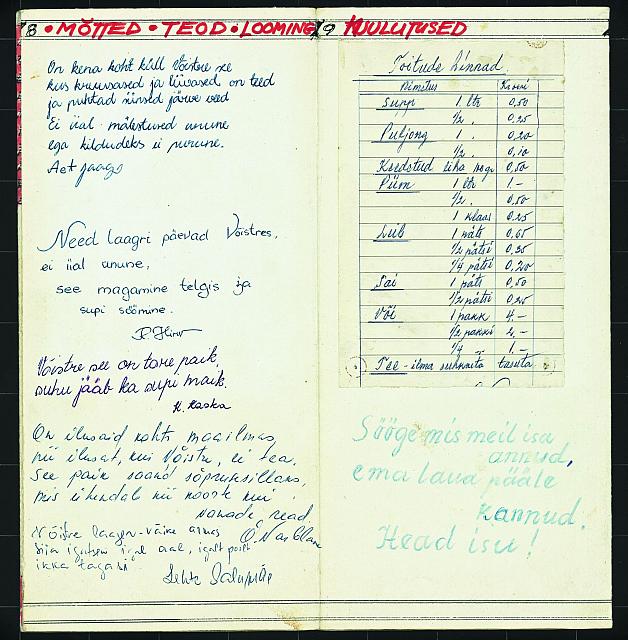 8 • MÕTTED • TEOD • LOOMING
9 KUULUTUSED
On kena koht küll Võistre se
kus kruusased ja liivased on teed
ja puhtad sinised järve veed
Ei iial mälestused unune
ega kildudeks ei purune.
Aet Jaago
Need laagri päevad Võistres,
ei iial unune,
see magamine telgis ja
supi söömine.
Võistre see on tore paik,
suhu jääb ka supi maik.
K. Kaska
On ilusaid kohti maailmas,
nii ilusat, kui Võistre, ei tea.
See paik saand sõprussillaks,
mis ühendab nii noort kui
vanade read
Võistre laager - väike armas
siia igatsen igal aal, igalt poolt
ikka tagasi.
Toitude hinnad
Nimetus Krooni
Supp 1 ltr 0,50
1/2 „ 0,25
Puljong 1 „ 0,20
1/2 „ 0,10
Keedetud liha 0,50
Piim 1 ltr 1.-
1/2 „ 0,50
1 klaas 0,25
Leib 1 päts 0,65
1/2 pätsi 0,35
1/4 pätsi 0,20
Sai 1 päts 0,50
1/2 pätsi 0,25
Või 1 pakk 4.-
1/2 pakki 2.-
1/4 „ 1.-
Tee - ilma suhkruta tasuta
Sööge mis meil isa
annud,
ema laua pääle
kannud.
Head isu!